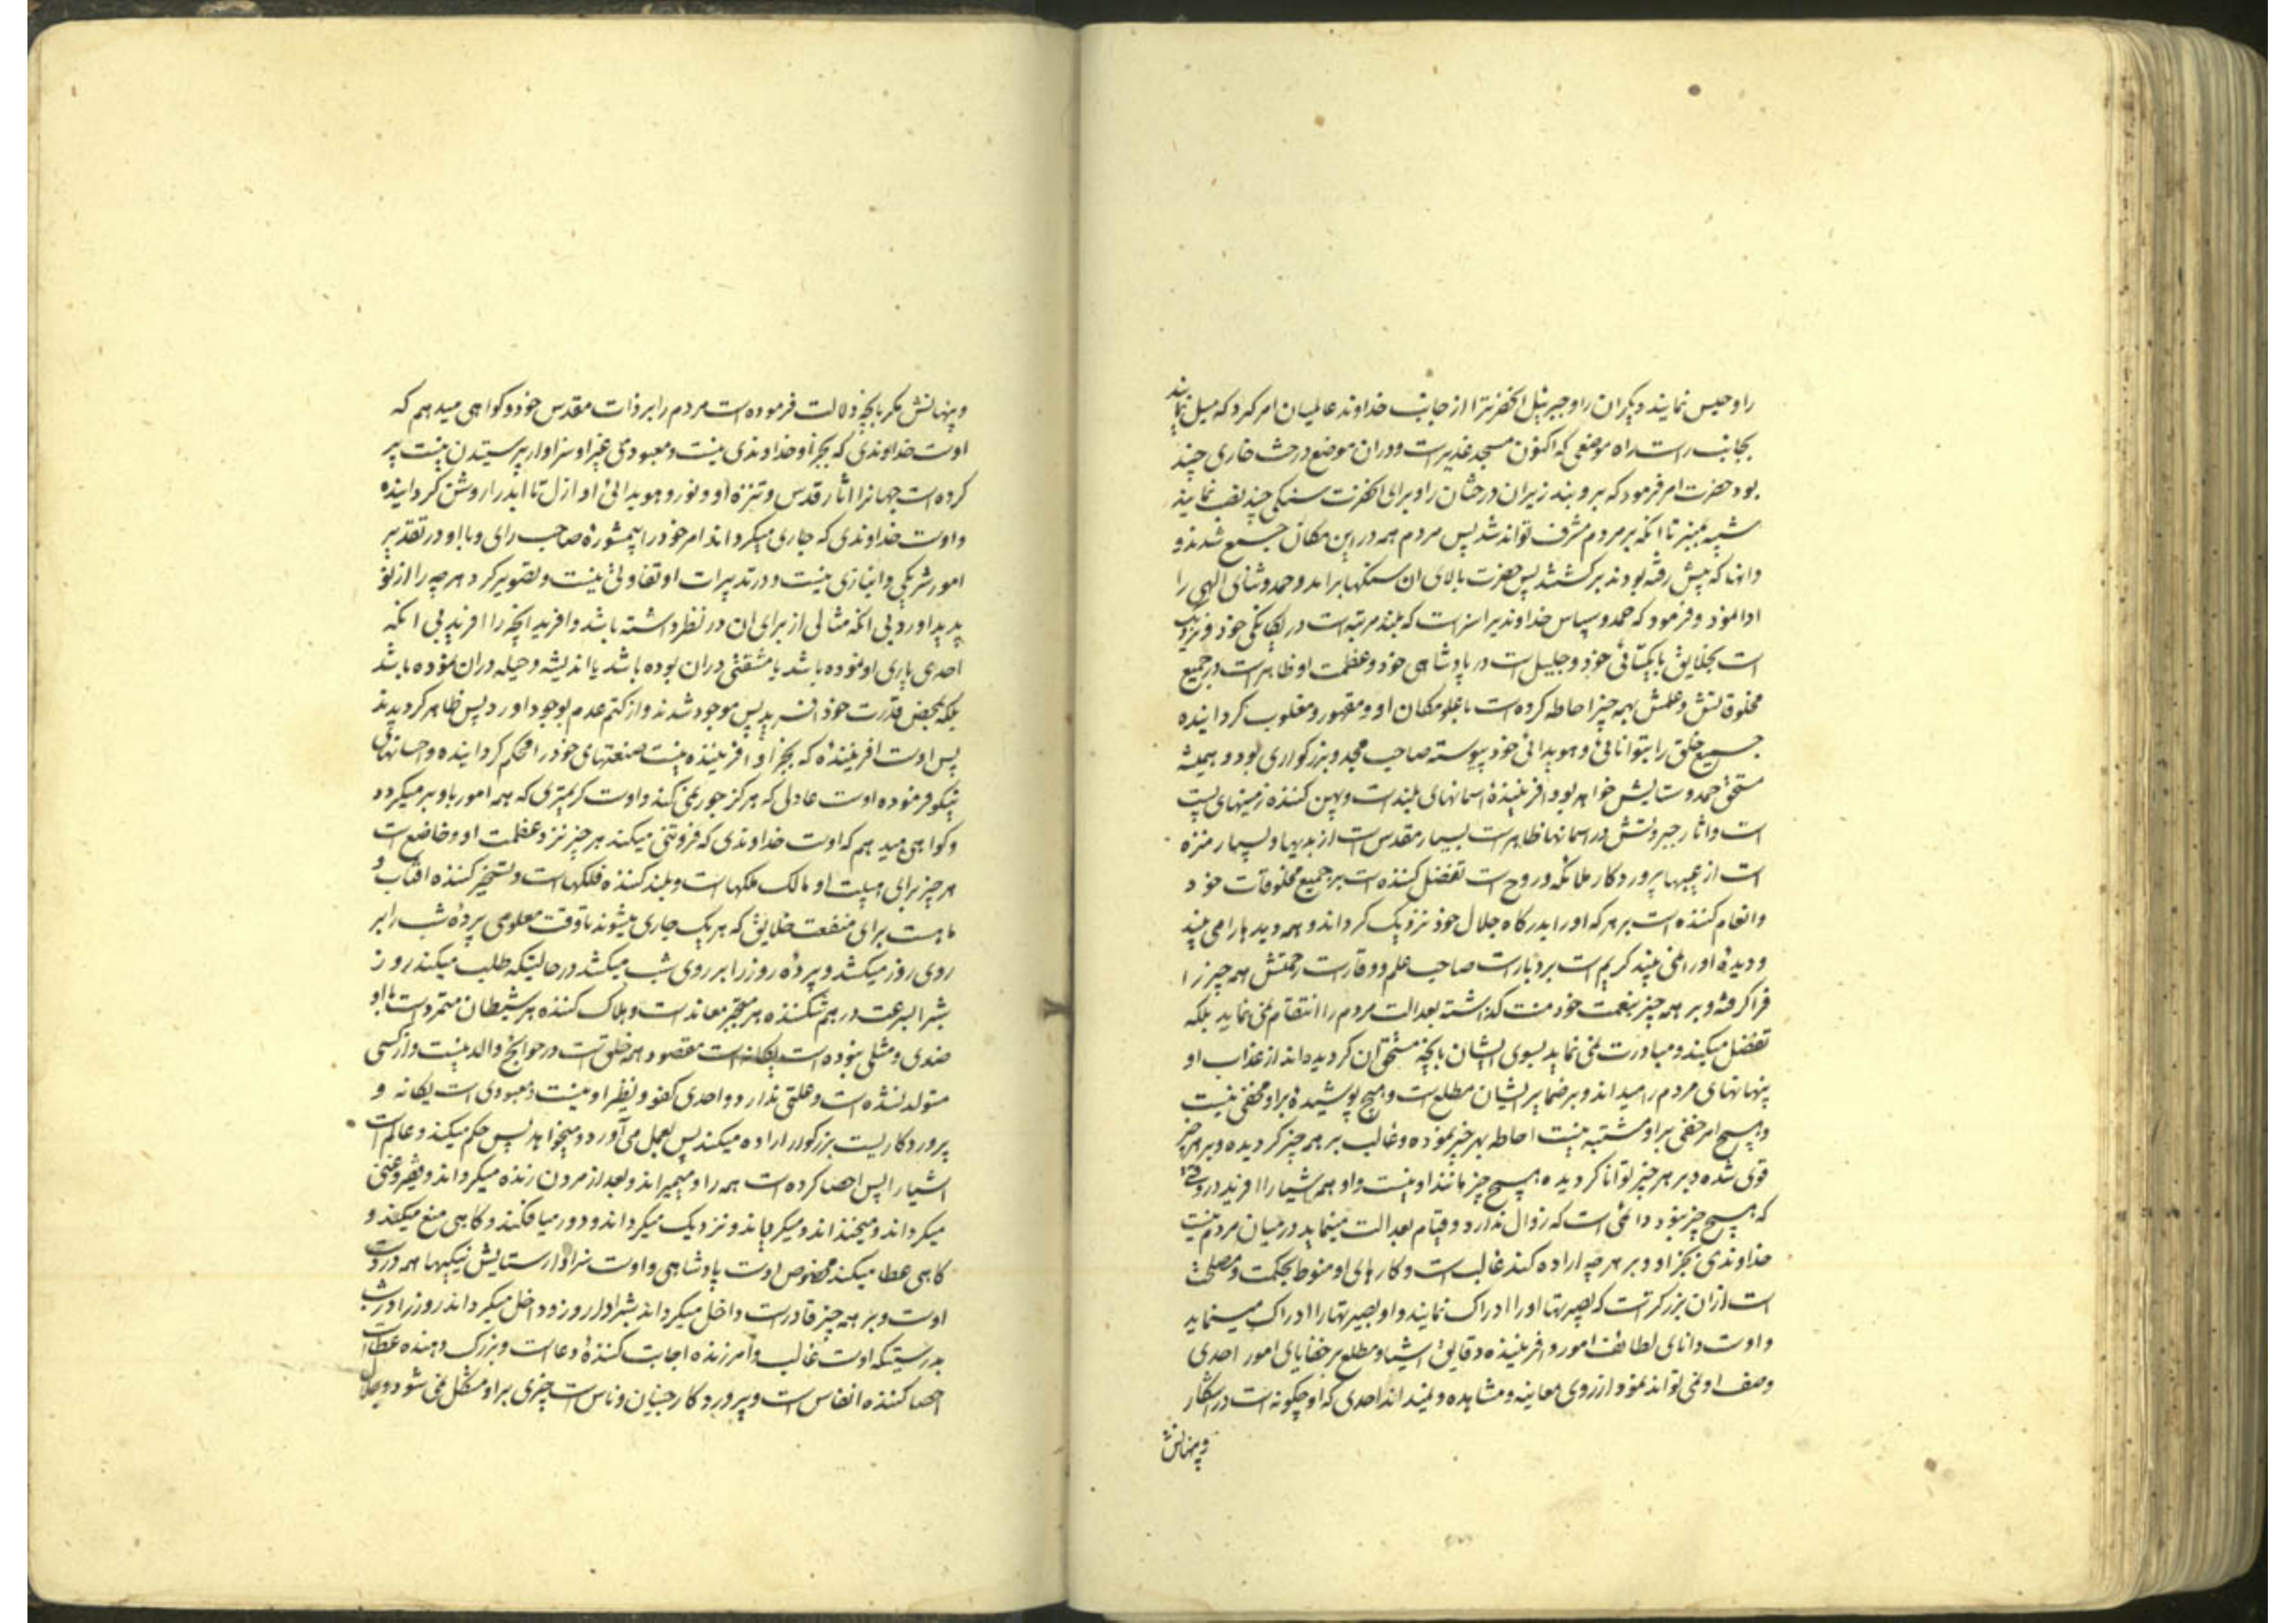 را و حبس نمایند دیگران را و جبرئیل آنحضرترا از جانب خداوند عالمیان امر کرد که میل نمایند
بجانب راست راه موضعی که اکنون مسجد غدیر است و در آن موضع درخت خاری چند
بود حضرت امر فرمود که بروبند زیر آن درختان را و برای آنحضرت سنگی چند نصب نمایند
شبیه بمنبر تا آنکه بر مردم مشرف تواند شد پس مردم همه در این مکان جمیع شدند و
وانها که پیش رفته بودند برگشتند پس حضرت بالای آن سنگها برآمد و حمد و ثنای الهی را
ادا نمود و فرمود که حمد و سپاس خداوندیرا سزاست که بلند مرتبه است در یگانگی خود و نزدیک
است بخلایق با یکتائی خود و جلیل است در پادشاهی خود و عظمت او ظاهر است در جمیع
مخلوقاتش و علمش بهمه چیز احاطه کرده است با علو مکان او و مقهور و مغلوب گردانیده
جمیع خلق را بتوانائی و هویدائی خود پیوسته صاحب مجد و بزرگواری بود و همیشه
مستحق حمد و ستایش خواهد بود آفرینندهٔ آسمانهای بلند است و پهن کننده زمینهای پست
است و آثار جبروتش در آسمانها ظاهر است بسیار مقدس است از بدیها و بسیار منزه
است از عیبها پروردگار ملائکه و روح است تفضل کننده است بر جمیع مخلوقات خود
و انعام کننده است بر هر که او را بدرگاه جلال خود نزدیک گرداند و همه دیدها را می بیند
و دیدهٔ او را نمی بیند کریم است بردبار است صاحب علم و وقار است رحمتش همه چیز را
فرا گرفته و بر همه چیز بنعمت خود منت گذاشته بعدالت مردم را انتقام نمی نماید بلکه
تفضل میکند و مبادرت نمی نماید بسوی ایشان بآنچه مستحق آن گردیده‌اند از عذاب او
پنهانهای مردم را میداند و بر ضمایر ایشان مطلع است و هیچ پوشیدهٔ بر او مخفی نیست
و هیچ امر خفی بر او مشتبه نیست احاطه بهر چیز نموده و غالب بر همه چیز گردیده و بر هر چیز
قوی شده و بر هر چیز توانا گردیده هیچ چیز مانند او نیست و او همه اشیا را آفرید در وقتی
که هیچ چیز نبود دائمی است که زوال ندارد و قیام بعدالت مینماید در میان مردم نیست
خداوندی بجز او و بر هر چه اراده کند غالب است و کارهای او منوط بحکمت و مصلحت
است از آن بزرگتر است که بصیرتها او را ادراک نمایند و او بصیرتها را ادراک مینماید
و اوست دانای لطائف امور و آفریننده دقایق اشیا و مطلع بر خفایای امور احدی
وصف او نمی تواند نمود از روی معاینه و مشاهده و نمیداند احدی که او چگونه است در آشکار
و پنهانش
و پنهانش مگر بآنچه دلالت فرموده است مردم را بر ذات مقدس خود و گواهی میدهم که
اوست خداوندی که بجز او خداوندی نیست و معبودی غیر او سزاوار پرستیدن نیست پر
کرده است جهانرا آثار قدس و تنزه او و نور و هویدائی او ازل تا ابد را روشن گردانیده
و اوست خداوندی که جاری میگرداند امر خود را بیمشورهٔ صاحب رای و با او در تقدیر
امور شریکی و انبازی نیست و در تدبیرات او تفاوتی نیست و تصویر کرد هر چه را از نو
پدید آورد بی آنکه مثالی از برای آن در نظر داشته باشد و آفرید آنچه را آفرید بی آنکه
احدی یاری او نموده باشد یا مشقتی در آن بوده باشد یا اندیشه و حیله در آن نموده باشد
بلکه بمحض قدرت خود آفرید پس موجود شدند و از کتم عدم بوجود آورد پس ظاهر گردیدند
پس اوست آفرینندهٔ که بجز او آفریننده نیست صنعتهای خود را محکم گردانیده و احسانهای
نیکو فرموده اوست عادلی که هرگز جور نمی کند و اوست کریمتری که همه امور باو بر میگردد
و گواهی میدهم که اوست خداوندی که فروتنی میکند هر چیز نزد عظمت او و خاضع است
هر چیز برای هیبت او مالک ملکها است و بلند کننده فلکها است و تسخیر کننده آفتاب و
ماهست برای منفعت خلایق که هر یک جاری میشوند تا وقت معلومی پردهٔ شب را بر
روی روز میکشد و پردهٔ روز را بر روی شب میکشد در حالتیکه طلب میکند روز
شبرا بسرعت در هم شکننده هر متجبر معاند است و هلاک کننده هر شیطان متمرد است با او
ضدی و مثلی نبوده است یگانه است مقصود همه خلق است در حوایج و والد نیست و از کسی
متولد نشده است و علتی ندارد و احدی کفو و نظیر او نیست معبودی است یگانه و
پروردگاریست بزرگوار اراده میکند پس بعمل می آورد و میخواهد پس حکم میکند و عالم است
اشیا را پس احصا کرده است همه را و میمیراند و بعد از مردن زنده میگرداند و فقیر و غنی
میگرداند و میخنداند و میگریاند و نزدیک میگرداند و دور میافکند و گاهی منع میکند و
گاهی عطا میکند مخصوص اوست پادشاهی و اوست سزاوار ستایش نیکیها همه در دست
اوست و بر همه چیز قادر است داخل میگرداند شبرا در روز و داخل میگرداند روز را در شب
بدرستیکه اوست غالب و آمرزنده اجابت کنندهٔ دعا است و بزرگ دهنده عطا است
احصا کننده انفاس است و پروردگار جنیان و ناس است چیزی بر او مشکل نمی شود و